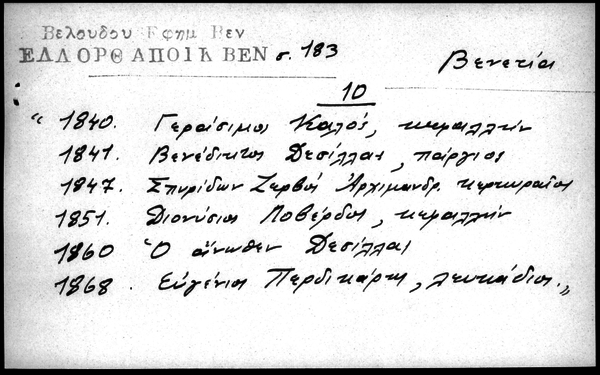 Βελουδου Εφημ Βεν
ΕΛΛ ΟΡΘ ΑΠΟΙΚ ΒΕΝ σ. 183
Βενετία
10
"1840. Γεράσιμος Καλός, κεφαλλήν
1841. Βενέδικτος Δεσίλλας, πάργιος
1847. Σπυρίδων Ζερβός Ἀρχιμανδρ. κερκυραῖος
1851. Διονύσιος Λοβέρδος, κεφαλλήν
1860 Ὁ ἄνωθεν Δεσίλλας
1868. Εὐγένιος Περδικάρης, λευκάδιος."